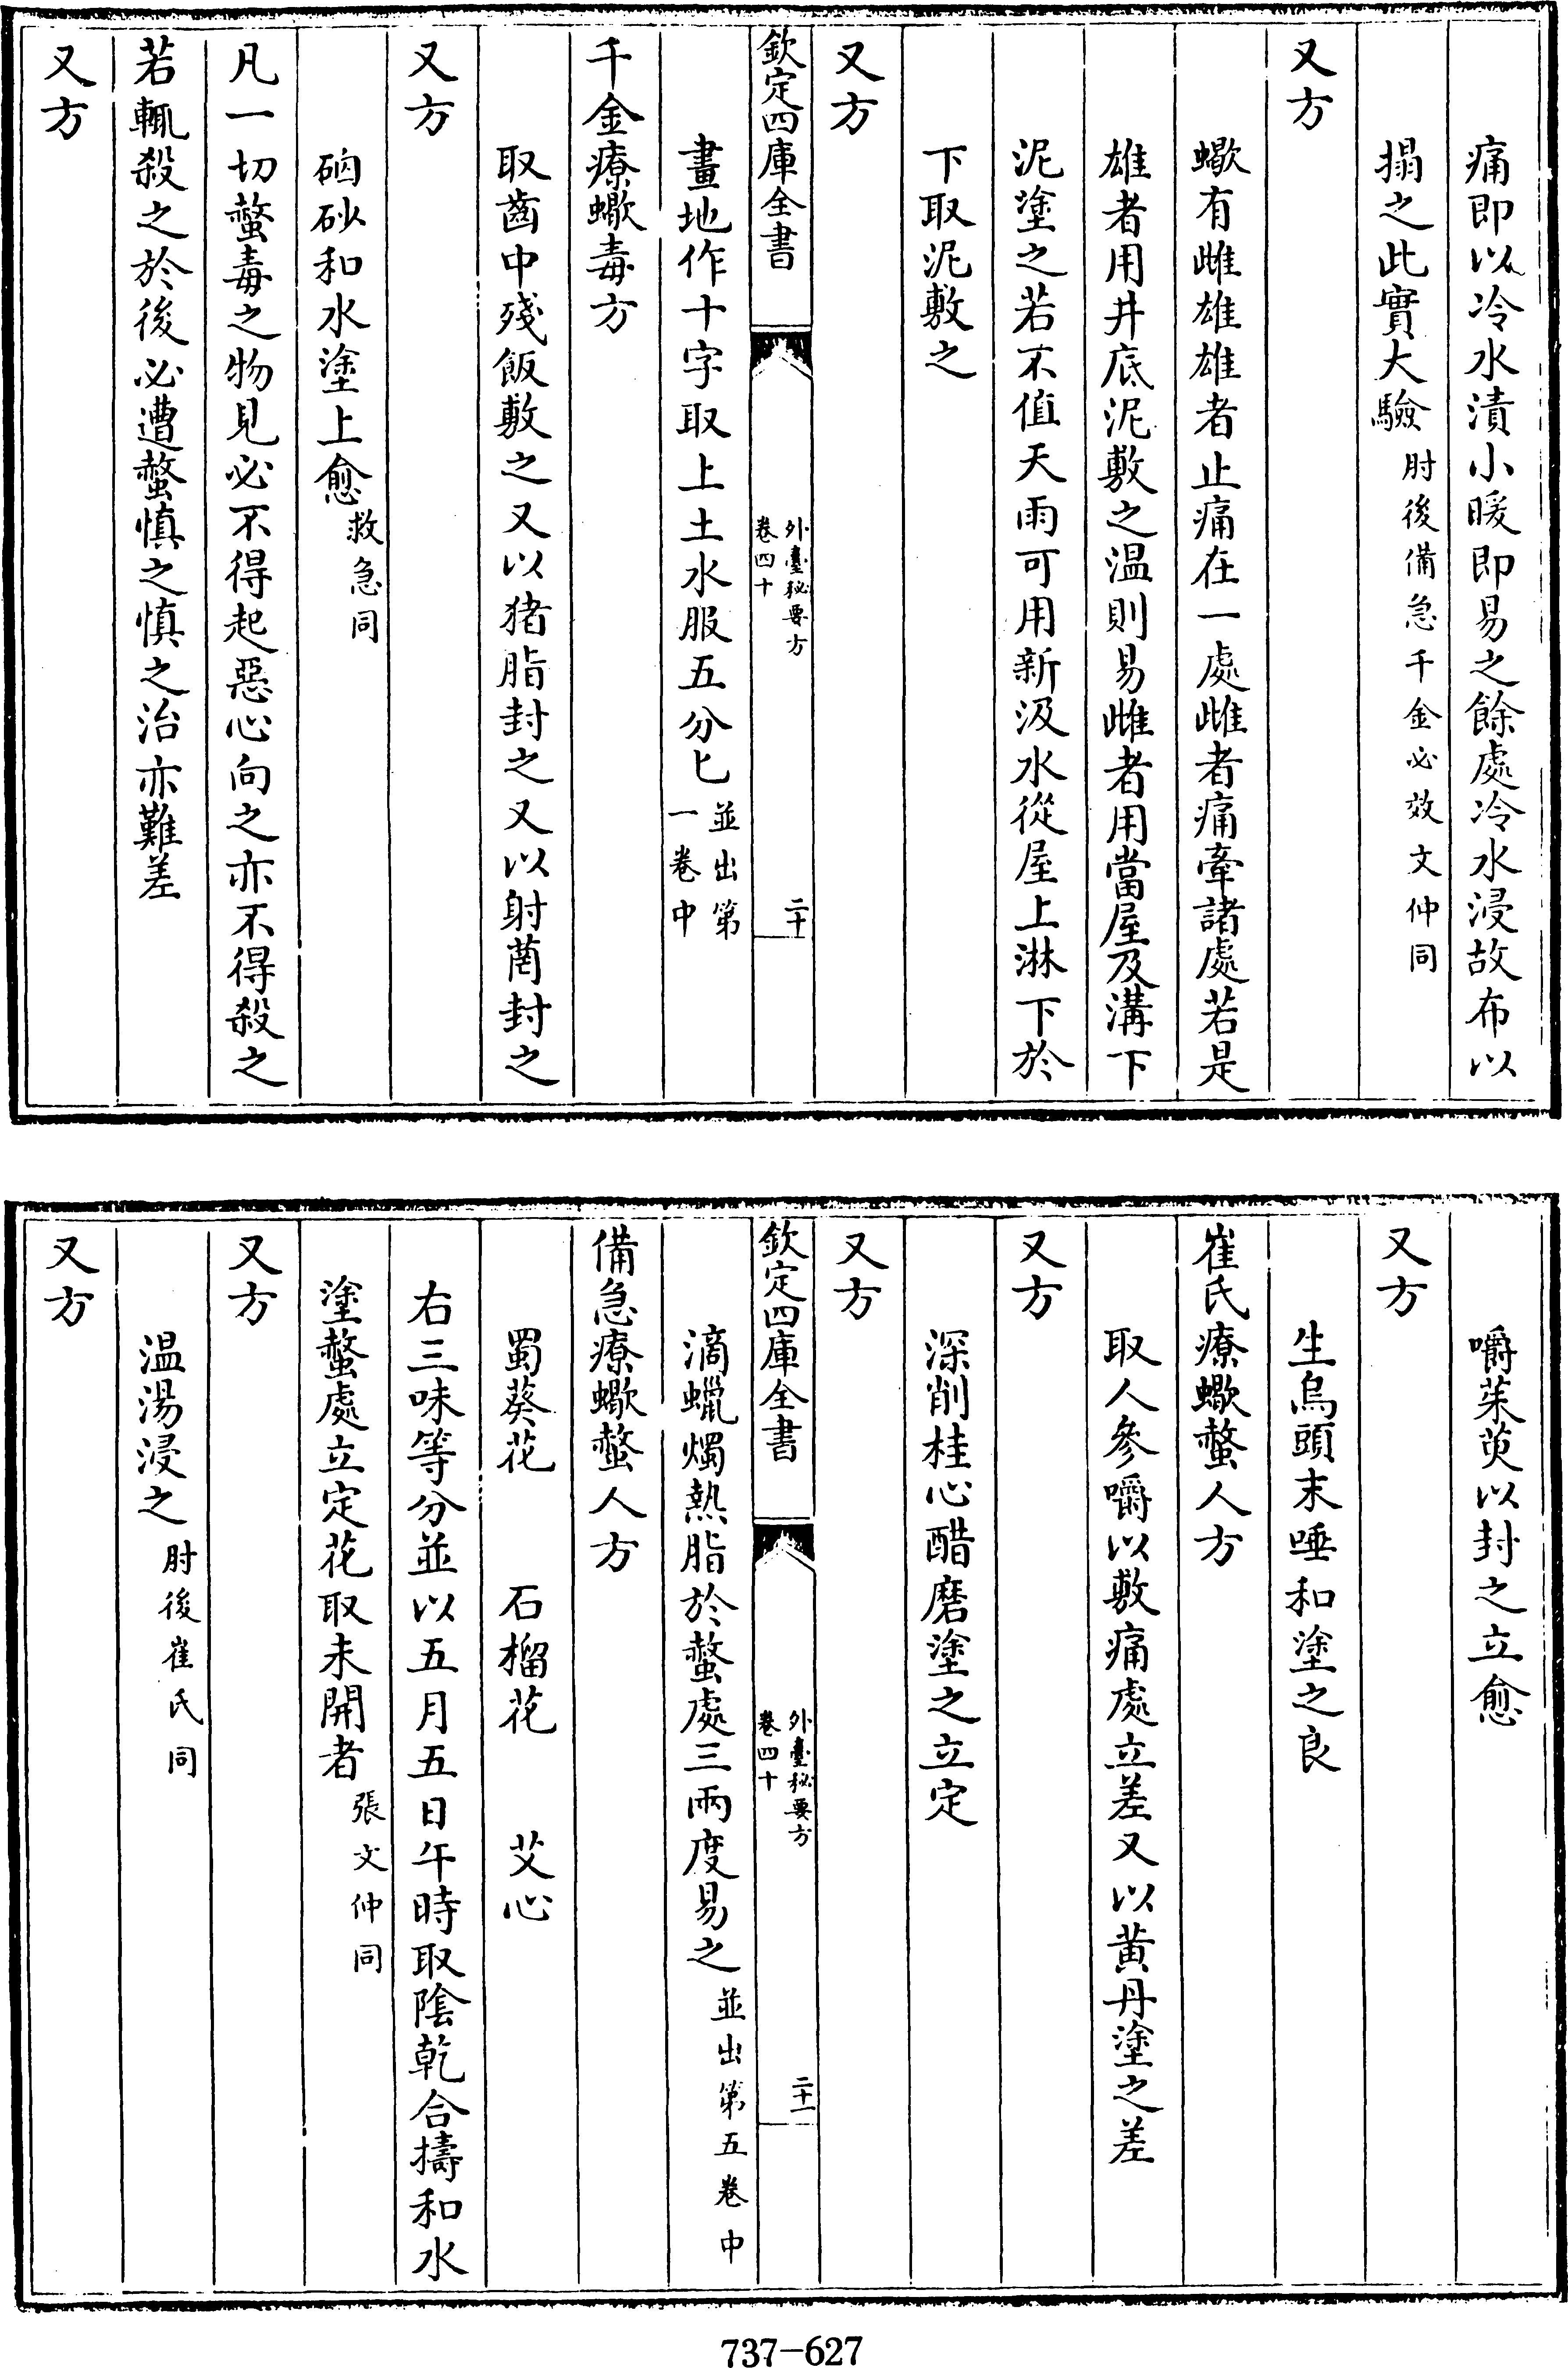 痛即以冷水漬小暖即易之餘處冷水浸故布以
搨之此實大驗肘後備急千金必效文仲同
又方
蠍有雌雄雄者止痛在一處雌者痛牽諸處若是
雄者用井底泥敷之温則易雌者用當屋及溝下
泥塗之若不值天雨可用新汲水從屋上淋下於
下取泥敷之
又方
欽定四庫全書
外臺秘要方
卷四十
二十
畫地作十字取上土水服五分匕並出第一卷中
千金療蠍毒方
取齒中殘飯敷之又以猪脂封之又以射䓢封之
又方
硇砂和水塗上愈救急同
凡一切螫毒之物見必不得起惡心向之亦不得殺之
若輒殺之於後必遭螫慎之慎之治亦難差
又方
嚼茱萸以封之立愈
又方
生烏頭末唾和塗之良
崔氏療蠍螫人方
取人參嚼以敷痛處立差又以黄丹塗之差
又方
深削桂心醋磨塗之立定
又方
欽定四庫全書
外臺秘要方
卷四十
二十一
滴蠟燭熱脂於螫處三兩度易之並出第五卷中
備急療蠍螫人方
蜀葵花 石榴花 艾心
右三味等分並以五月五日午時取陰乾合擣和水
塗螫處立定花取未開者張文仲同
又方
温湯浸之肘後崔氏同
又方
737-627